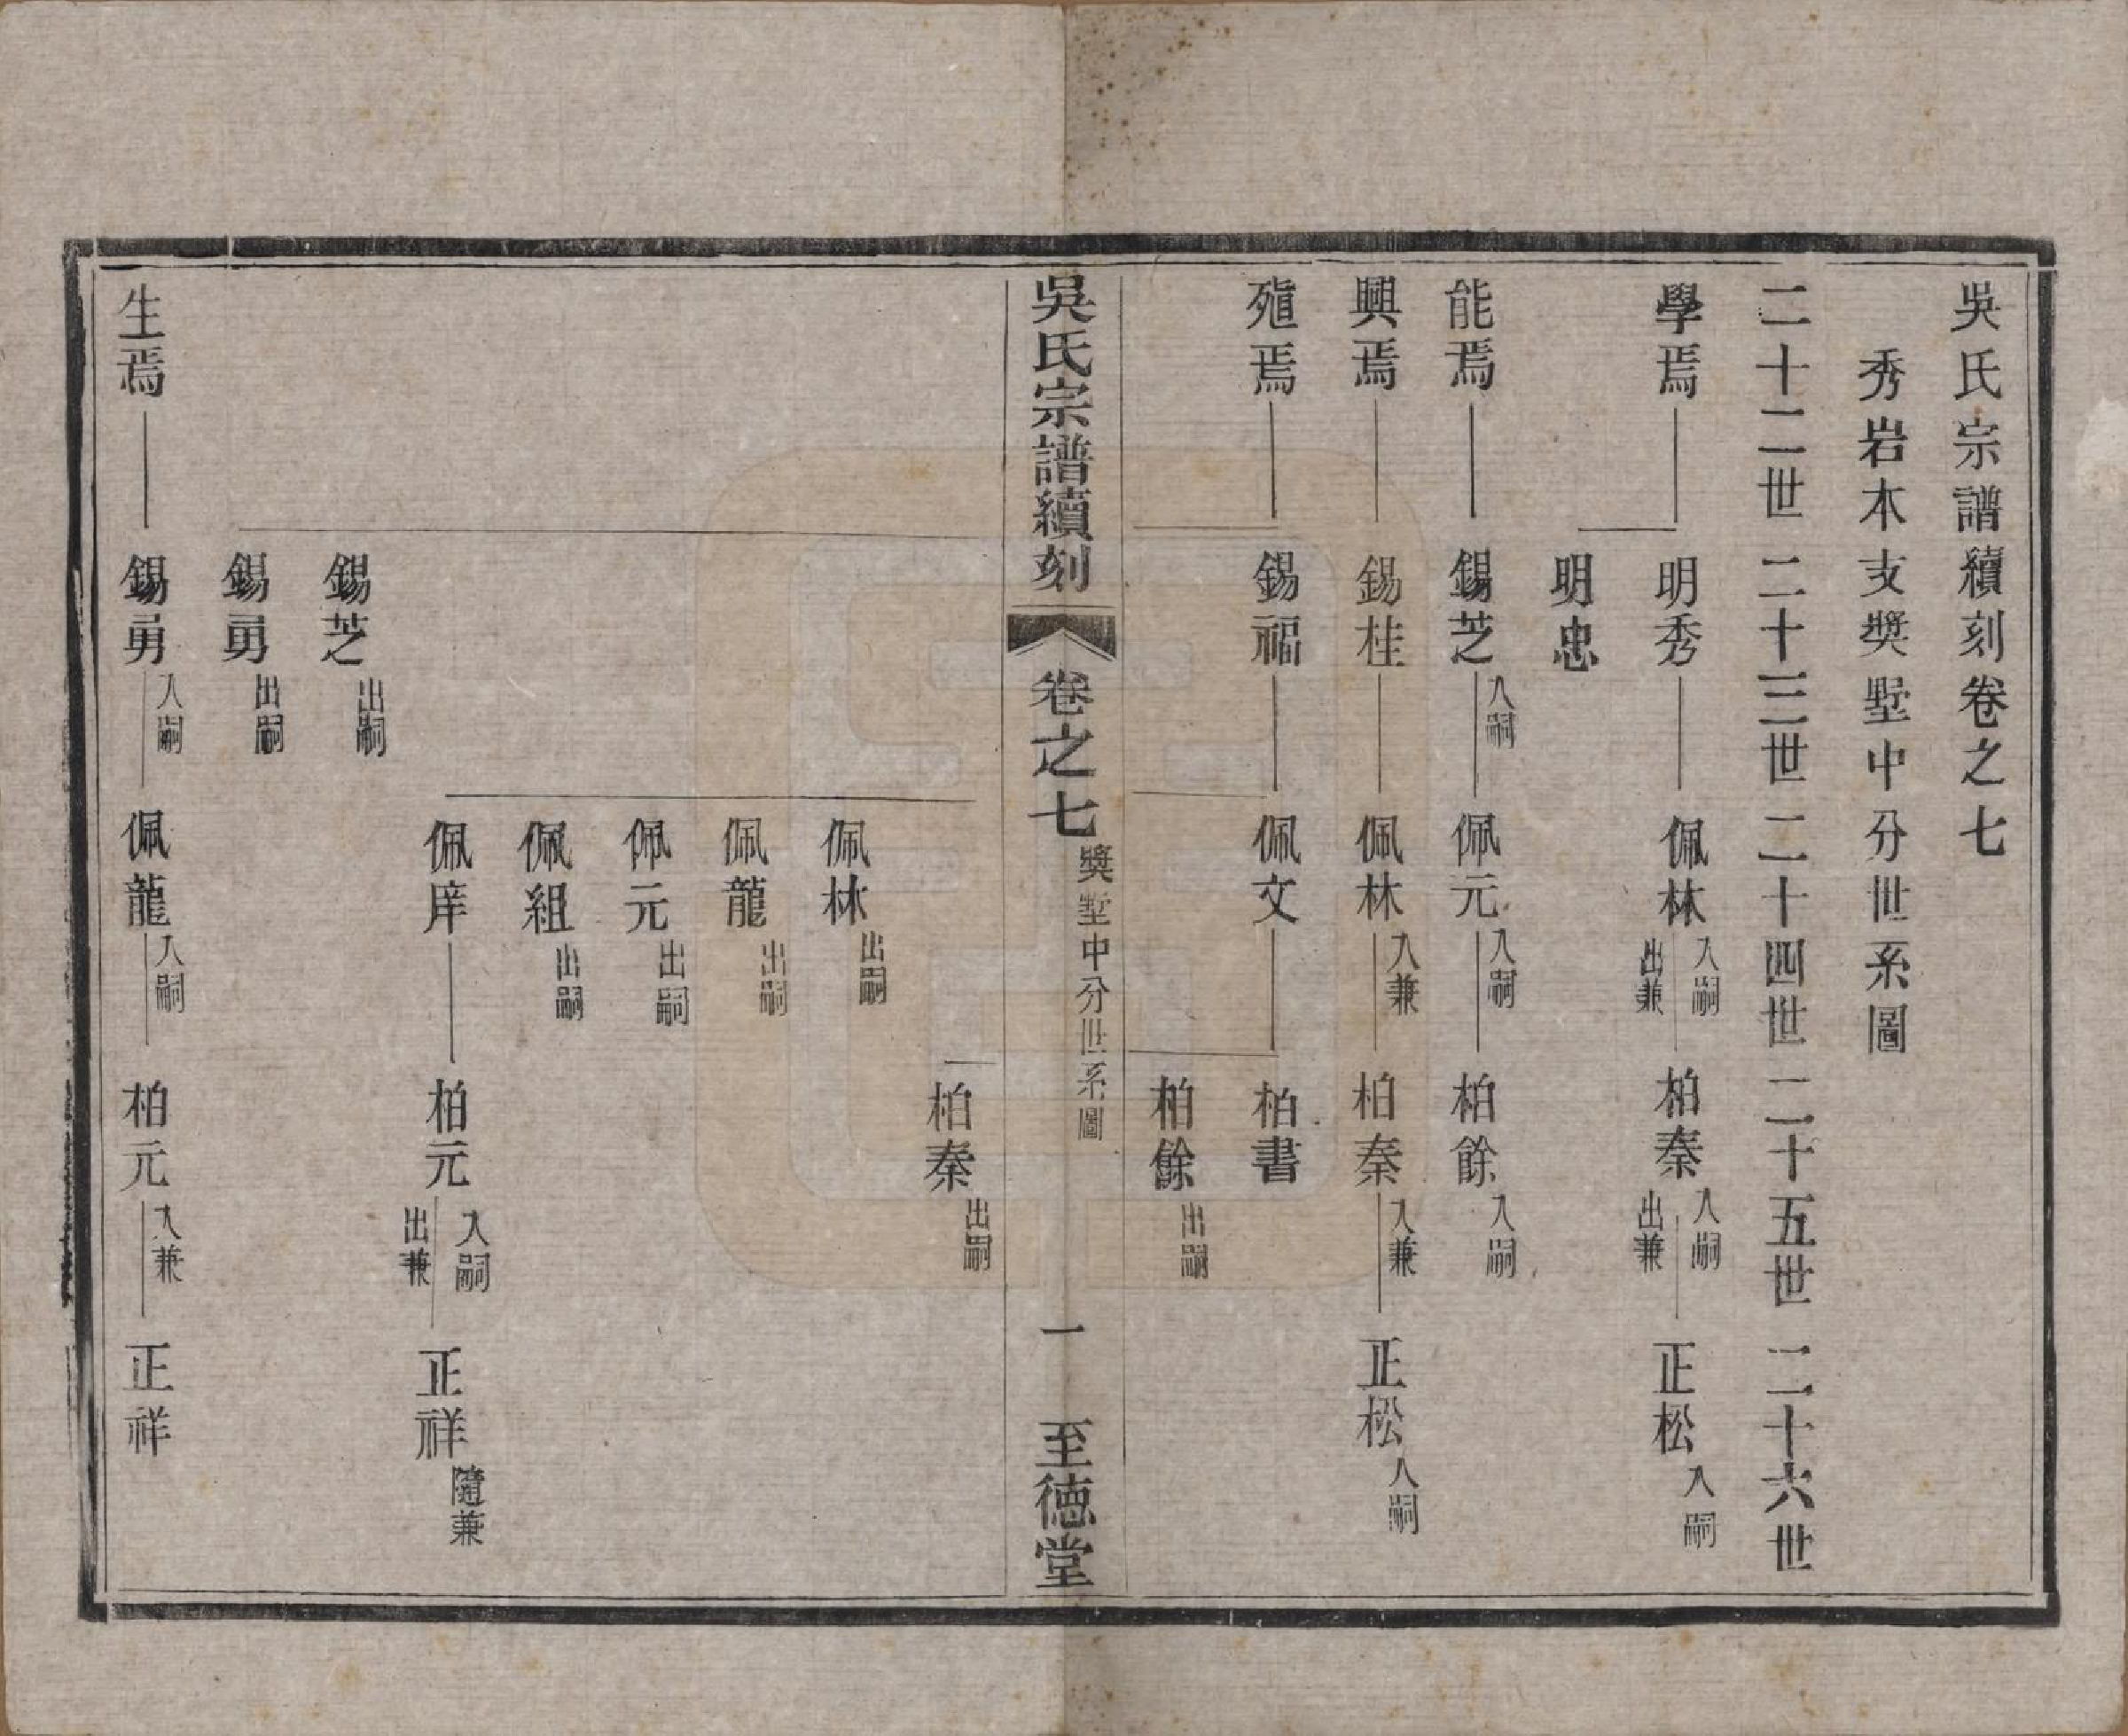 吳氏宗譜續刻卷之七
秀岩本支獎墅中分世系圖
二十二世 二十三世 二十四世 二十五世 二十六世
學焉 明秀 佩林 入嗣 出兼 柏秦 入嗣 出兼 正松 入嗣
明忠
能焉 錫芝 入嗣 佩元 入嗣 柏餘 入嗣
興焉 錫桂 佩林 入兼 柏秦 入兼 正松 入嗣
殖焉 錫福 佩文 柏書
柏餘 出嗣
吳氏宗譜續刻 卷之七 獎墅中分世系圖 一 至德堂
柏秦 出嗣
佩林 出嗣
佩龍 出嗣
佩元 出嗣
佩組 出嗣
佩庠 柏元 入嗣 出兼 正祥 隨兼
錫芝 出嗣
錫勇 出嗣
生焉 錫勇 入嗣 佩龍 入嗣 柏元 入兼 正祥